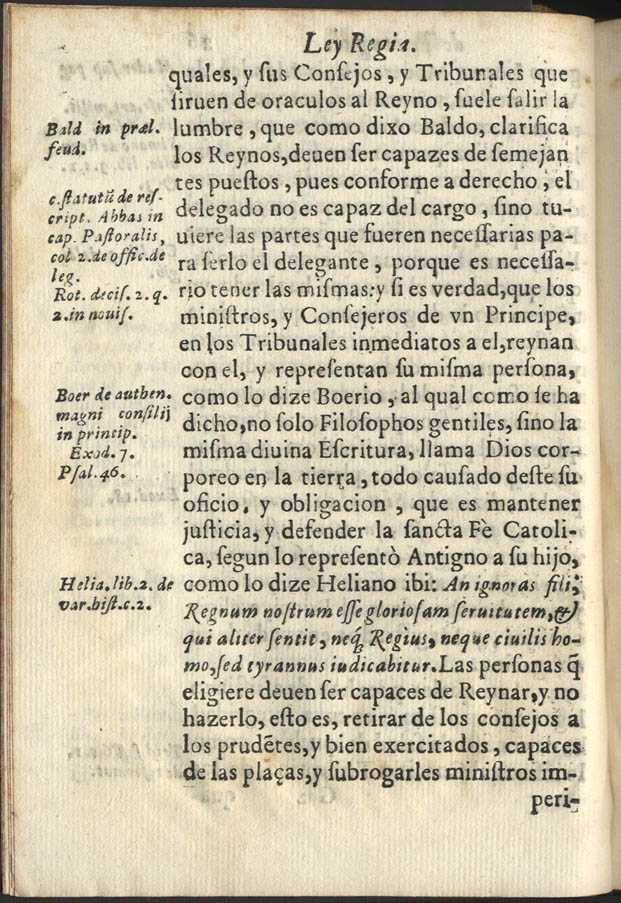 Ley Regia.
quales, y ſus Conſejos, y Tribunales que
ſiruen de oraculos al Reyno, ſuele ſalir la
Bald in præl.
feud.
lumbre, que como dixo Baldo, clarifica
los Reynos, deuen ſer capazes de ſemejan
tes pueſtos, pues conforme a derecho, el
c. ſtatutũ de reſ-
cript. Abbas in
cap. Paſtoralis,
col 2. de offic. de
leg.
Rot. deciſ. 2. q.
2. in nouiſ.
delegado no es capaz del cargo, ſino tu-
uiere las partes que fueren neceſſarias pa-
ra ſerlo el delegante, porque es neceſſa-
rio tener las miſmas: y ſi es verdad, que los
miniſtros, y Conſejeros de vn Principe,
en los Tribunales inmediatos a el, reynan
con el, y repreſentan ſu miſma perſona,
Boer de authen.
magni conſilij
in princip.
Exod. 7.
Pſal. 46.
como lo dize Boerio, al qual como ſe ha
dicho, no ſolo Filoſophos gentiles, ſino la
miſma diuina Eſcritura, llama Dios cor-
poreo en la tierra, todo cauſado deſte ſu
oficio, y obligacion, que es mantener
juſticia, y defender la ſancta Fè Catoli-
ca, ſegun lo repreſentò Antigno a ſu hijo,
Helia. lib. 2. de
var. hiſt. c. 2.
como lo dize Heliano ibi: An ignoras fili,
Regnum noſtrum eſſe glorioſam ſeruitutem, &
qui aliter ſentit, neq; Regius, neque ciuilis ho-
mo, ſed tyrannus iudicabitur. Las perſonas q̃
eligiere deuen ſer capaces de Reynar, y no
hazerlo, eſto es, retirar de los conſejos a
los prudẽtes, y bien exercitados, capaces
de las plaças, y ſubrogarles miniſtros im-
peri-